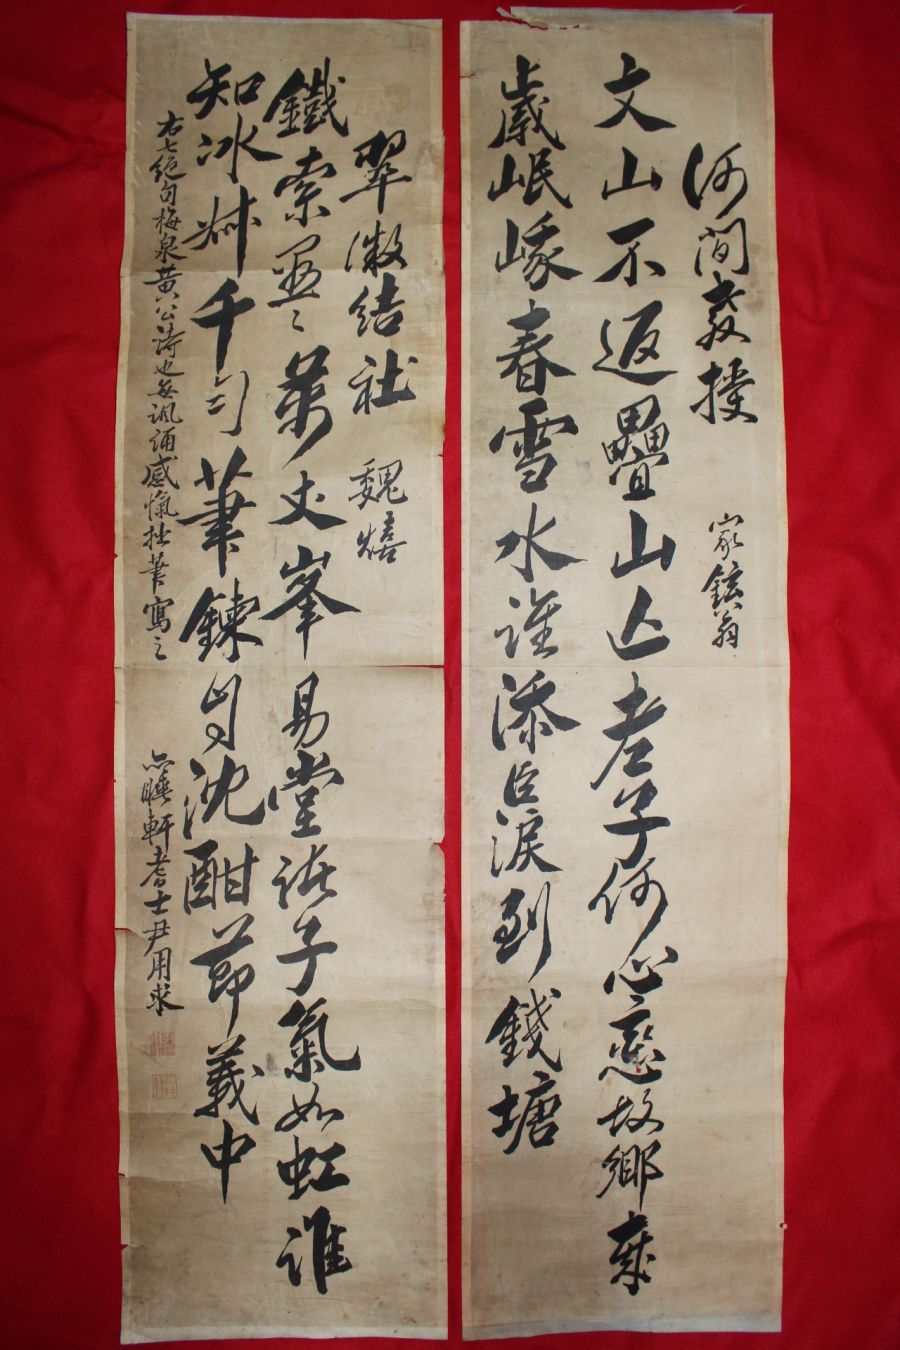 河間教授 家鉉翁
文山不返疊山亡老子何心戀故鄉歲
歲岷峨春雪水誰添臣淚到錢塘
翠微結社 魏禧
鐵索 萬丈峯易堂諸子氣如虹誰
知冰叔千勻筆鍊自沈酣節義中
右七絕句梅泉黃公詩也每諷誦感愾拙筆寫之 軒耆士尹用求